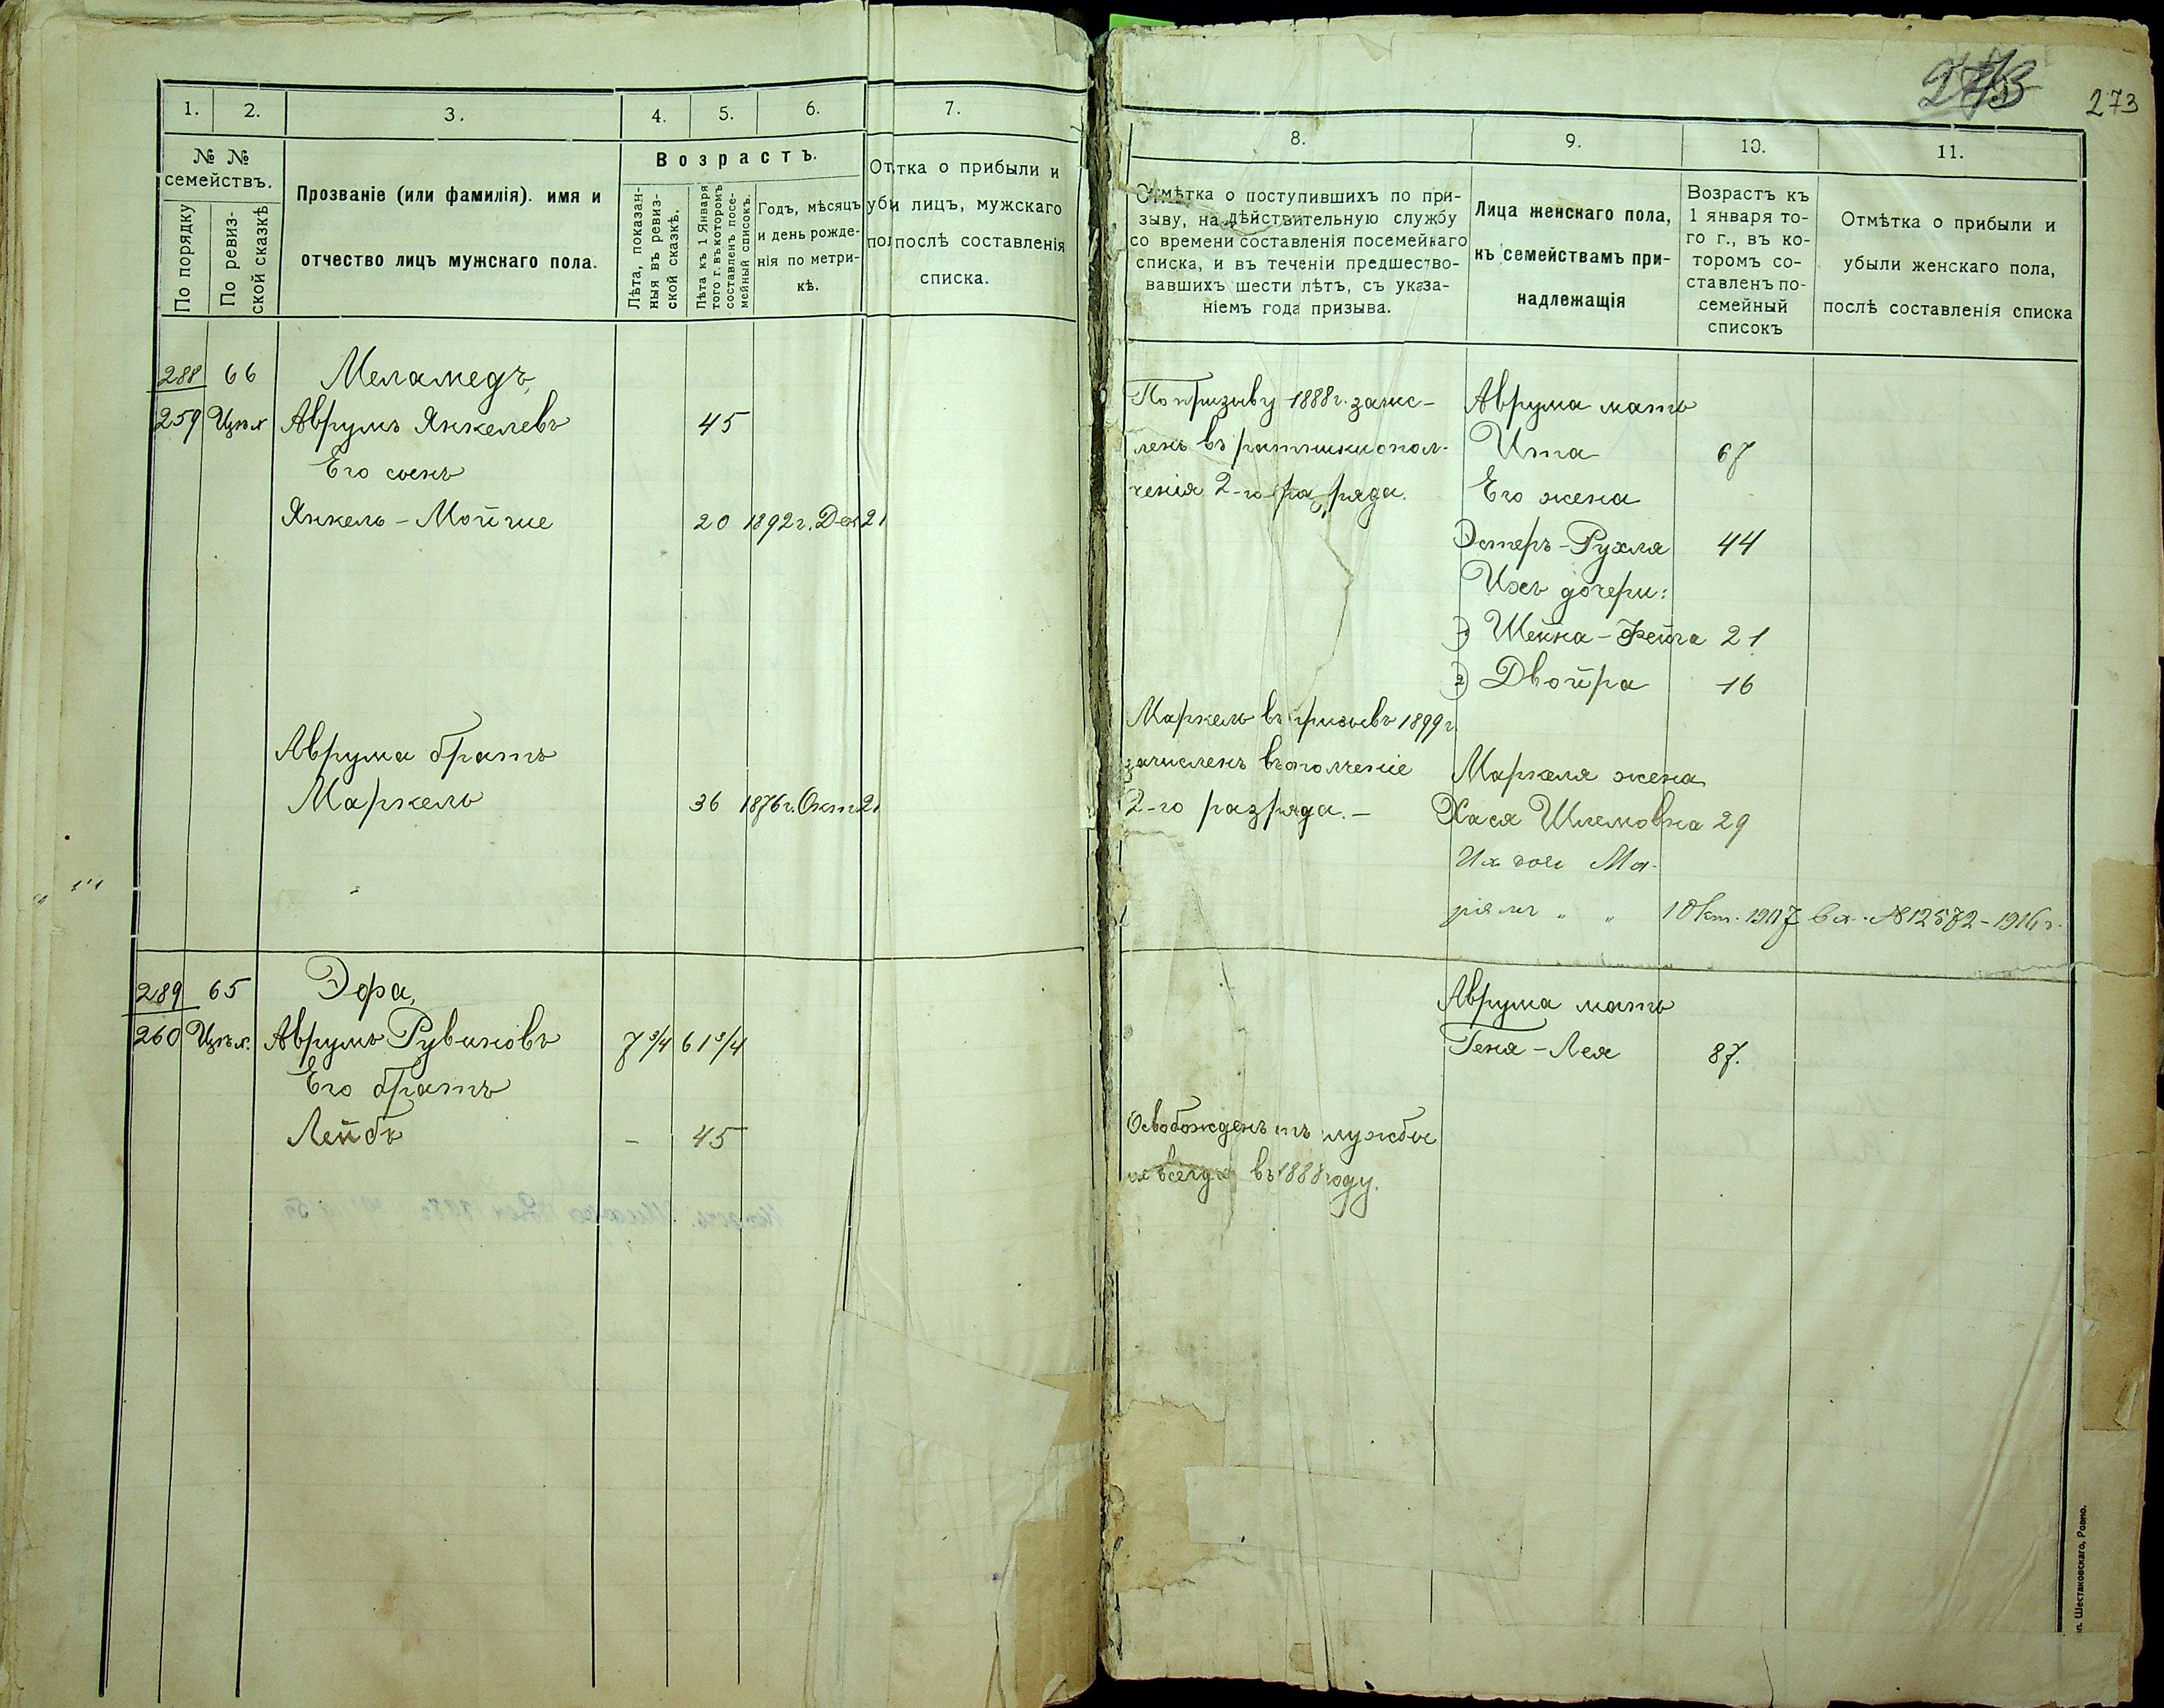 273
1. 2. 3. 4. 5. 6. 7.
№ №
семействъ.
По порядку
По ревиз-
ской сказкѣ
Прозваніе (или фамилія). имя и
отчество лицъ мужскаго пола.
Возрастъ.
Лѣта, показан-
ныя въ ревиз-
ской сказкѣ.
Лѣта къ 1 Января
того г. въ которомъ
составленъ посе-
мейный списокъ.
Годъ, мѣсяцъ
и день рожде-
нія по метри-
кѣ.
От тка о прибыли и
уби лицъ, мужскаго
пол послѣ составленія
списка.
288 66 Меламедъ,
259 Аврумъ Янкелевъ 45
Его сынъ
Янкель-Мойше 20 1892г. Дек 21
Аврума братъ
Маркель 36 1876г. Окт 21
289 65 Эфра,
260 Аврумъ Рувиновъ 7 3/4 61 3/4
Его братъ
Лейбъ - 45
8. 9. 10. 11.
Отмѣтка о поступившихъ по при-
зыву, на дѣйствительную службу
со времени составленія посемейнаго
списка, и въ теченіи предшество-
вавшихъ шести лѣтъ, съ указа-
ніемъ года призыва.
Лица женскаго пола,
къ семействамъ при-
надлежащія
Возрастъ къ
1 января то-
го г., въ ко-
торомъ со-
ставленъ по-
семейный
списокъ
Отмѣтка о прибыли и
убыли женскаго пола,
послѣ составленія списка
По призыву 1888г. зачис- Аврума мать
ленъ въ ратники опол- Ита 67
ченія 2-го разряда. Его жена
Эстеръ-Рухля 44
Ихъ дочери:
1) Шейна-Фейга 21
2) Двойра 16
Маркель въ призывъ 1899г.
зачисленъ въ ополченіе Маркеля жена
2-го разряда. — Хася Шлемовна 29
Их дочь Ма-
ріямъ " " 1 Окт. 1907 вх. №12572-1916г.
Аврума мать
Геня-Лея 87.
Освобожденъ отъ службы
навсегда въ 1888 году.
Шестаковскаго, Ровно.